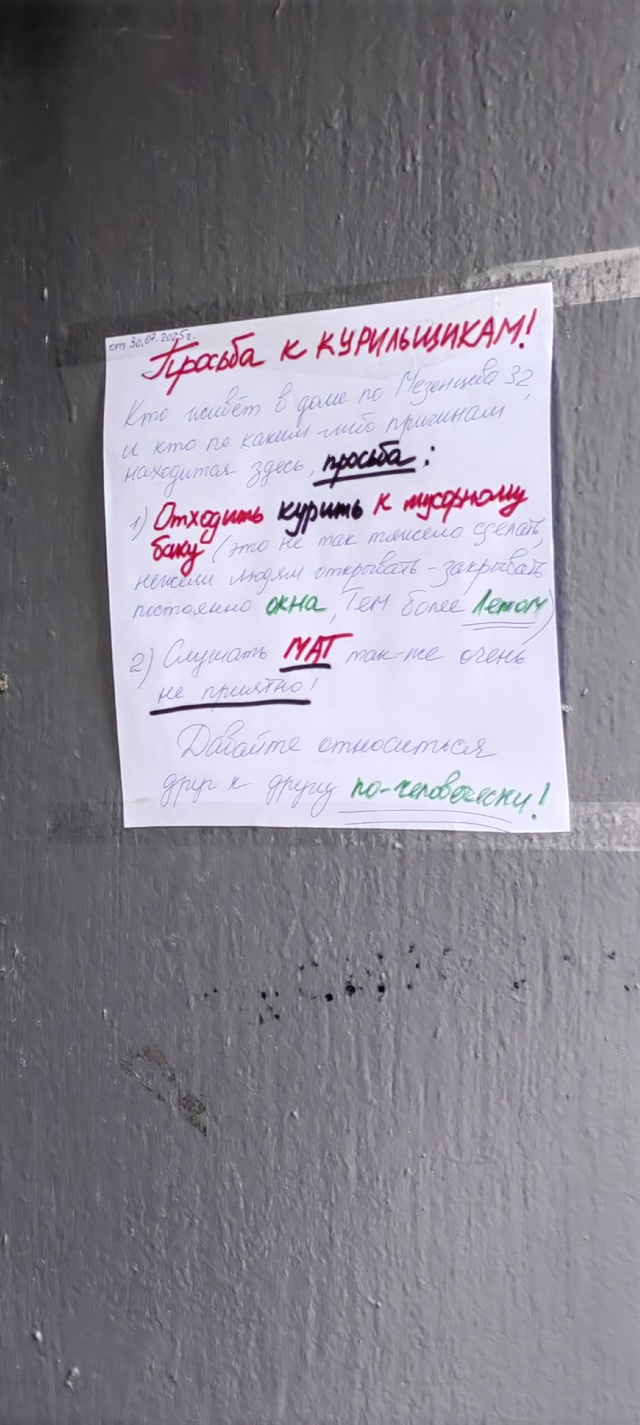 от 30.07.2025г.
Просьба к КУРИЛЬЩИКАМ!
Кто живёт в доме по Мезенцева 32,
и кто по каким-либо причинам
находится здесь, просьба:
1) Отходить курить к мусорному
баку (это не так тяжело сделать,
нежели людям открывать-закрывать
постоянно окна, Тем более Летом)
2) Слушать МАТ так-же очень
не приятно!
Давайте относиться
друг к другу по-человечески!